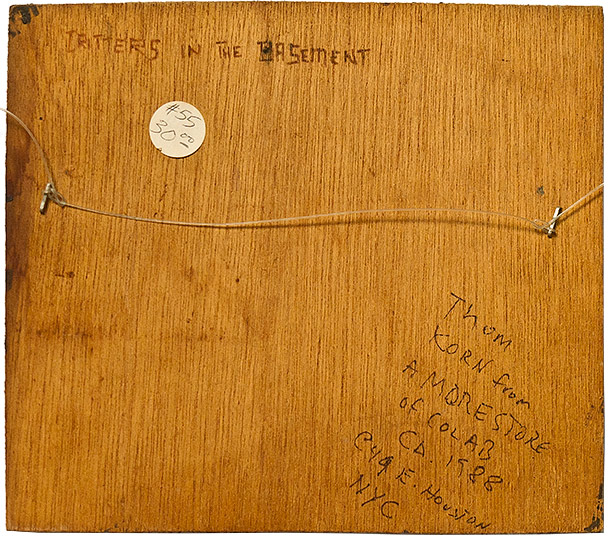 CRITTERS IN THE BASEMENT
#55
30.00
Thom
KORN from
A MORE STORE
of COLAB
CD. 1988
C49 E. HOUSTON
NYC